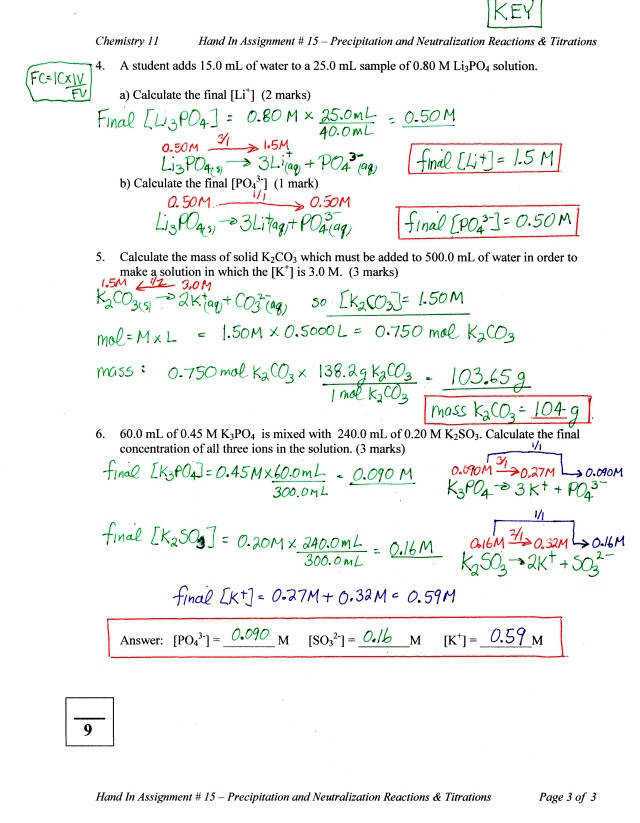 KEY
Chemistry 11 Hand In Assignment # 15 – Precipitation and Neutralization Reactions & Titrations
FC=ICxIV/FV
4. A student adds 15.0 mL of water to a 25.0 mL sample of 0.80 M Li₃PO₄ solution.
a) Calculate the final [Li⁺] (2 marks)
Final [Li₃PO₄] = 0.80 M × 25.0mL/40.0mL = 0.50 M
0.50M 3/1 → 1.5M
Li₃PO₄(s) → 3Li⁺(aq) + PO₄³⁻(aq) final [Li+] = 1.5 M
b) Calculate the final [PO₄³⁻] (1 mark)
0.50M 1/1 → 0.50M
Li₃PO₄(s) → 3Li⁺(aq) + PO₄³⁻(aq) final [PO₄³⁻] = 0.50M
5. Calculate the mass of solid K₂CO₃ which must be added to 500.0 mL of water in order to
make a solution in which the [K⁺] is 3.0 M. (3 marks)
1.5M ← 1/2 3.0M
K₂CO₃(s) → 2K⁺(aq) + CO₃²⁻(aq) so [K₂CO₃] = 1.50M
mol = M x L = 1.50M × 0.5000L = 0.750 mol K₂CO₃
mass : 0.750 mol K₂CO₃ × 138.2g K₂CO₃/1 mol K₂CO₃ = 103.65 g
mass K₂CO₃ = 104 g
6. 60.0 mL of 0.45 M K₃PO₄ is mixed with 240.0 mL of 0.20 M K₂SO₃. Calculate the final
concentration of all three ions in the solution. (3 marks)
1/1
final [K₃PO₄] = 0.45M × 60.0mL/300.0mL = 0.090 M 0.090M 3/1 → 0.27M → 0.090M
K₃PO₄ → 3K⁺ + PO₄³⁻
1/1
final [K₂SO₃] = 0.20M × 240.0mL/300.0mL = 0.16M 0.16M 2/1 → 0.32M → 0.16M
K₂SO₃ → 2K⁺ + SO₃²⁻
final [K+] = 0.27M + 0.32M = 0.59M
Answer: [PO₄³⁻] = 0.090 M [SO₃²⁻] = 0.16 M [K⁺] = 0.59 M
9
Hand In Assignment # 15 – Precipitation and Neutralization Reactions & Titrations Page 3 of 3